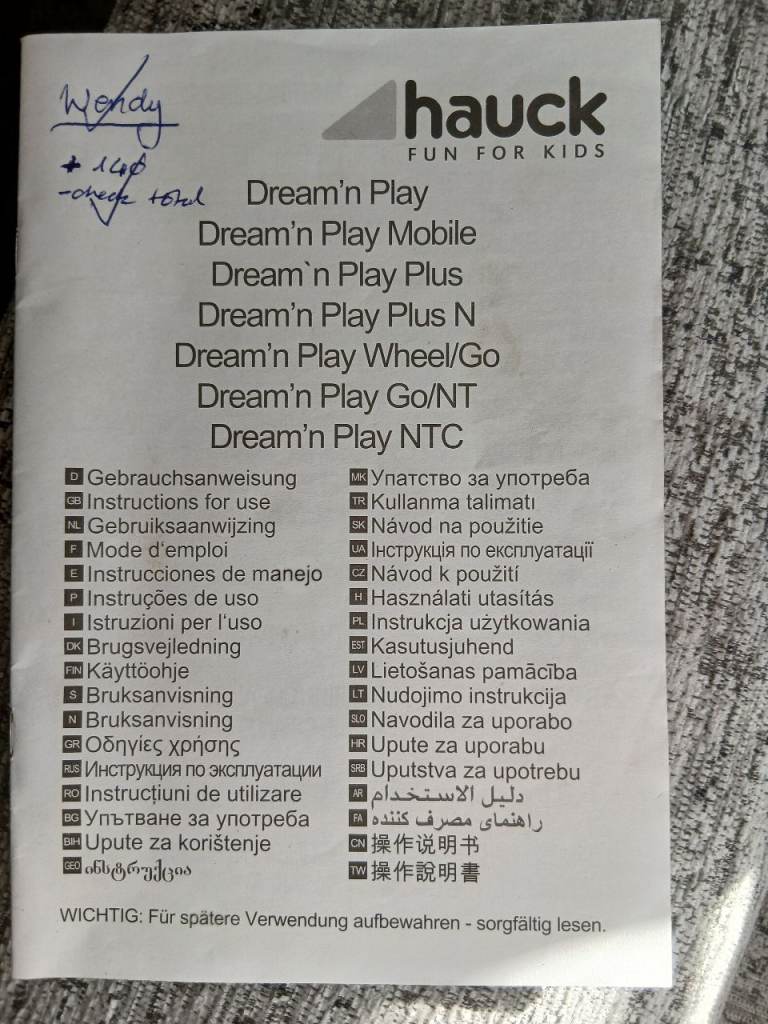 Wendy
+ 140
- check total
hauck
FUN FOR KIDS
Dream’n Play
Dream’n Play Mobile
Dream`n Play Plus
Dream’n Play Plus N
Dream’n Play Wheel/Go
Dream’n Play Go/NT
Dream’n Play NTC
D Gebrauchsanweisung
GB Instructions for use
NL Gebruiksaanwijzing
F Mode d‘emploi
E Instrucciones de manejo
P Instruções de uso
I Istruzioni per l‘uso
DK Brugsvejledning
FIN Käyttöohje
S Bruksanvisning
N Bruksanvisning
GR Οδηγίες χρήσης
RUS Инструкция по эксплуатации
RO Instrucţiuni de utilizare
BG Упътване за употреба
BIH Upute za korištenje
GEO ინსტრუქცია
MK Упатство за употреба
TR Kullanma talimatı
SK Návod na použitie
UA Інструкція по експлуатації
CZ Návod k použití
H Használati utasítás
PL Instrukcja użytkowania
EST Kasutusjuhend
LV Lietošanas pamācība
LT Nudojimo instrukcija
SLO Navodila za uporabo
HR Upute za uporabu
SRB Uputstva za upotrebu
AR دليل الاستخدام
FA راهنمای مصرف کننده
CN 操作说明书
TW 操作說明書
WICHTIG: Für spätere Verwendung aufbewahren - sorgfältig lesen.